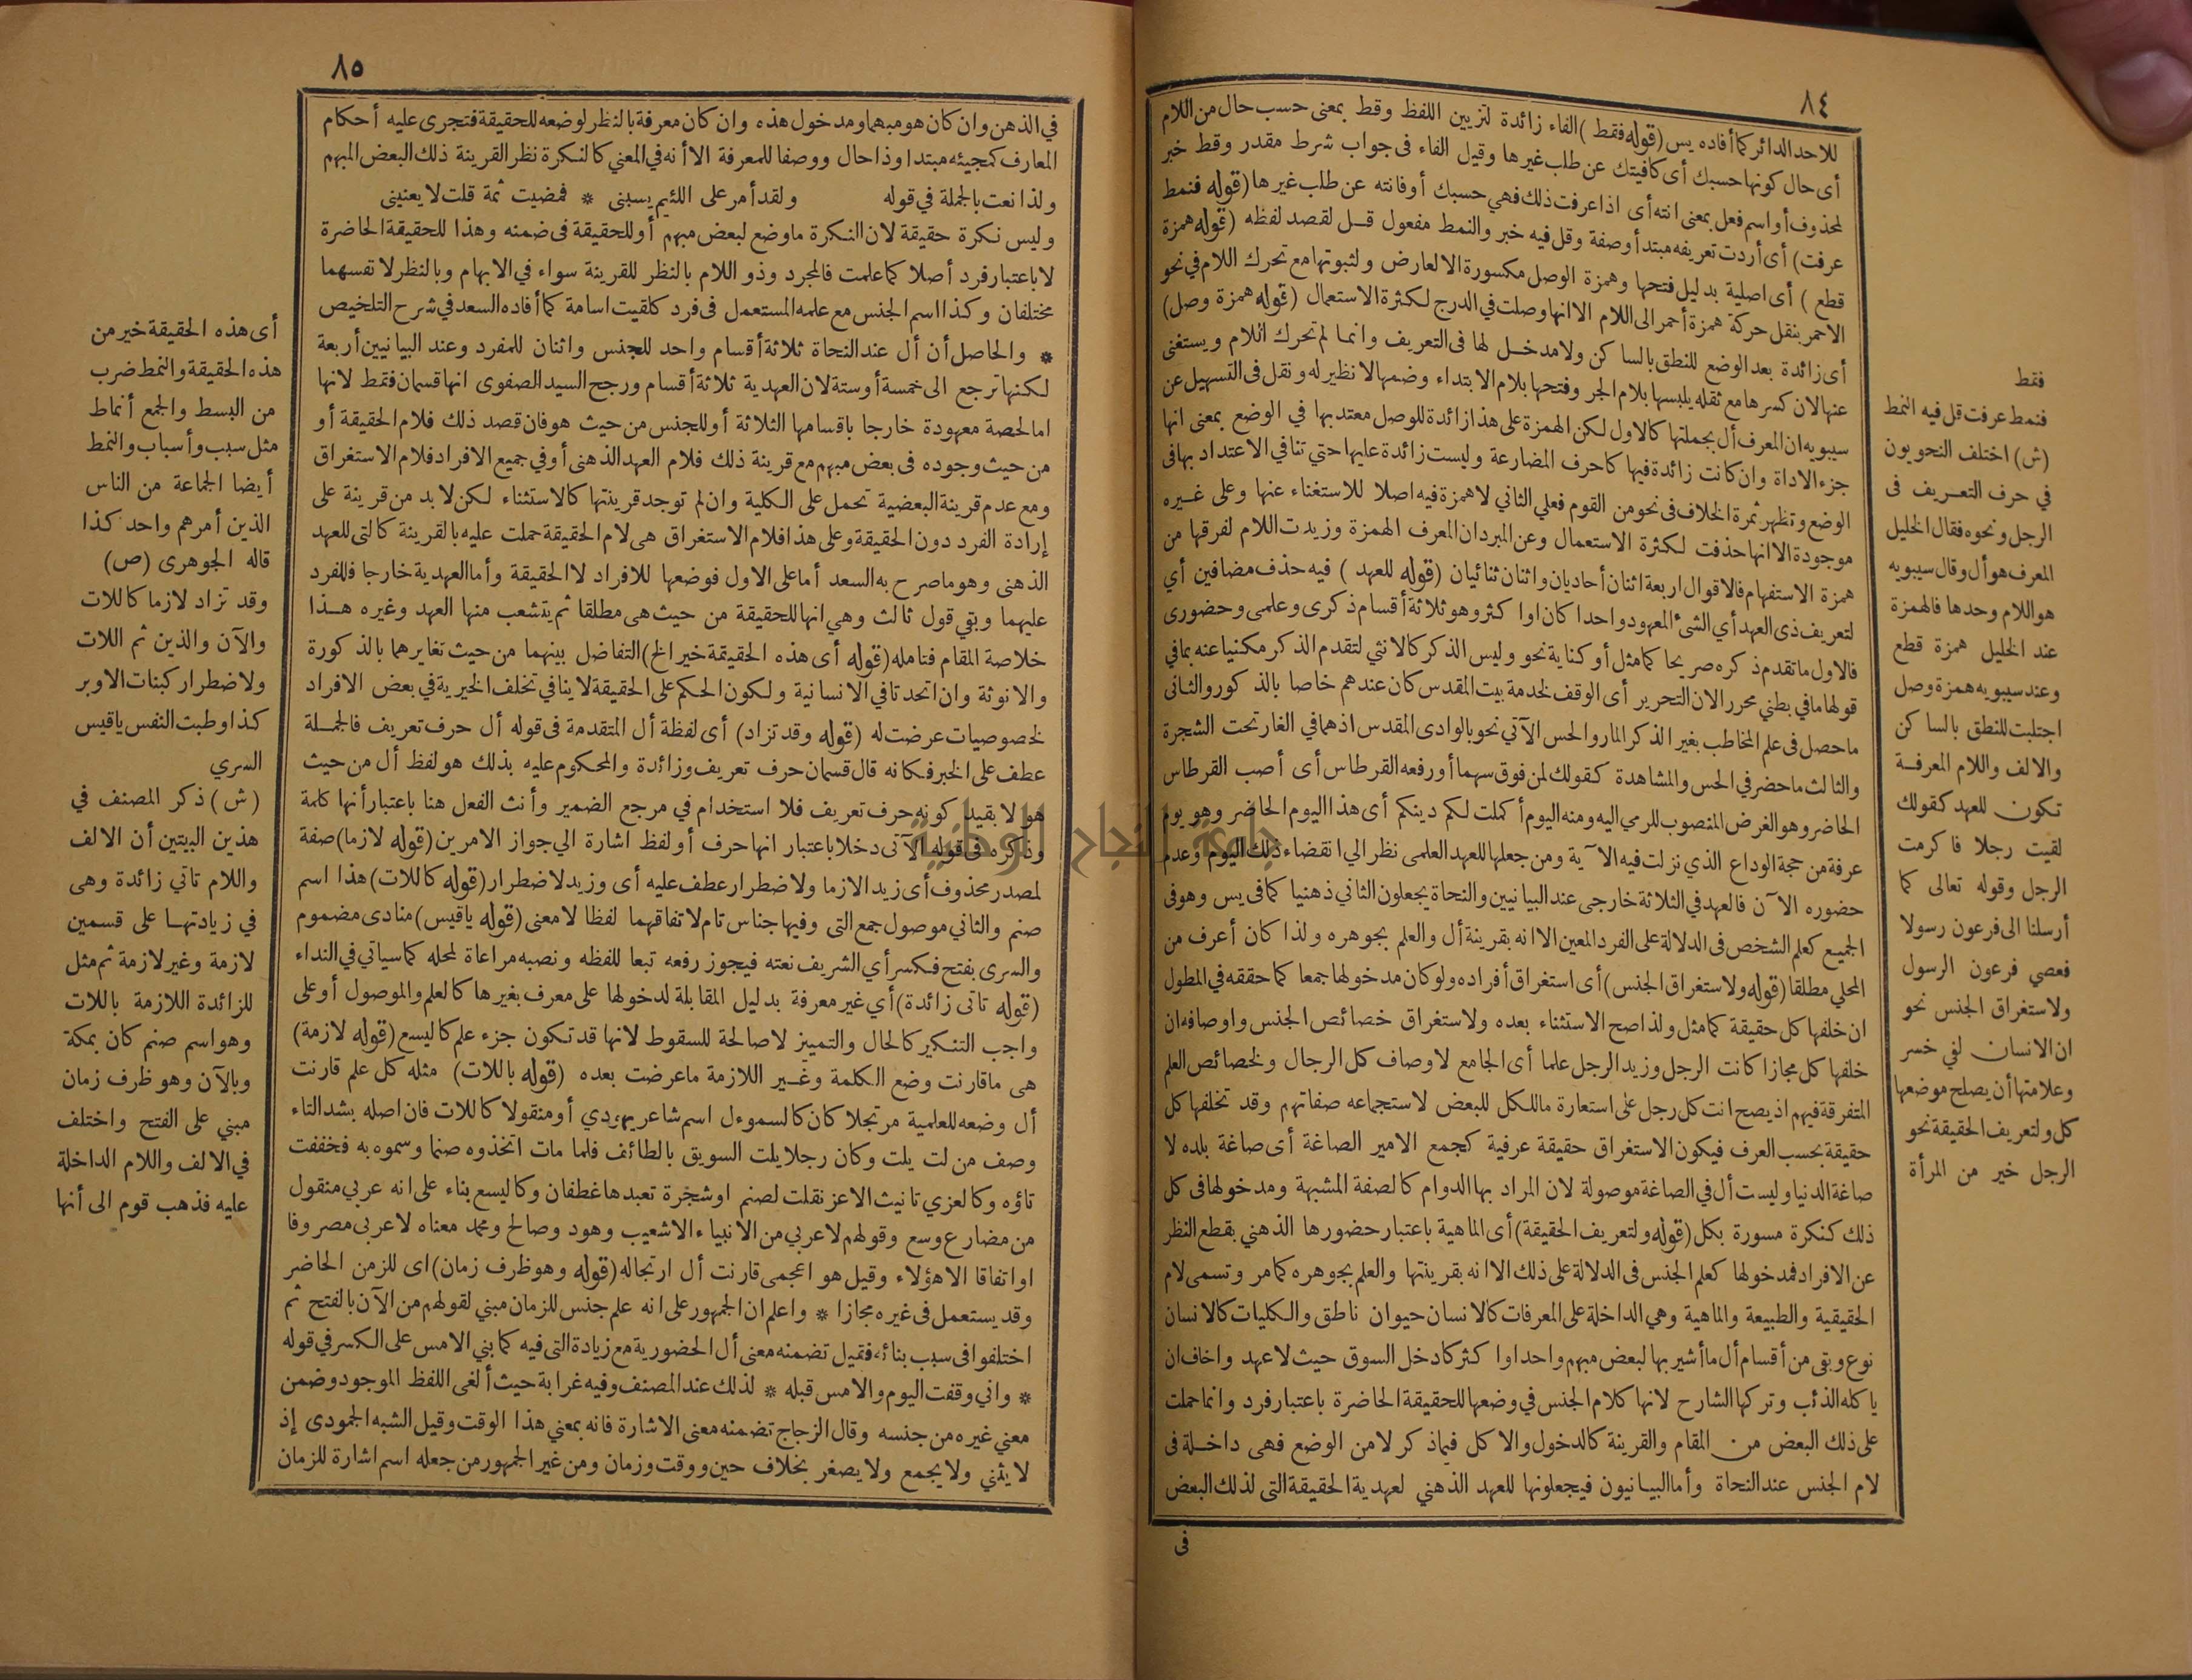 ٨٤
للاحد الدائر كما أفاده يس (قوله فقط) الفاء زائدة لتزيين اللفظ وقط بمعنى حسب حال من اللام
أى حال كونها حسبك أى كافيتك عن طلب غيرها وقيل الفاء فى جواب شرط مقدر وقط خبر
لمحذوف أو اسم فعل بمعنى انته أى اذا عرفت ذلك فهي حسبك أو فانته عن طلب غيرها (قوله فنمط
عرفت) أى أردت تعريفه مبتدأ وصفة وقل فيه خبر والنمط مفعول قل لقصد لفظه (قوله همزة
قطع) أى اصلية بدليل فتحها وهمزة الوصل مكسورة الا لعارض ولثبوتها مع تحرك اللام في نحو
الاحمر بنقل حركة همزة أحمر الى اللام الا انها وصلت في الدرج لكثرة الاستعمال (قوله همزة وصل)
أى زائدة بعد الوضع للنطق بالساكن ولا مدخل لها فى التعريف وانما لم تحرك اللام ويستغنى
عنها لان كسرها مع ثقله يلبسها بلام الجر وفتحها بلام الابتداء وضمها لا نظير له ونقل فى التسهيل عن
سيبويه ان المعرف أل بجملتها كالاول لكن الهمزة على هذا زائدة للوصل معتد بها في الوضع بمعنى انها
جزء الاداة وان كانت زائدة فيها كاحرف المضارعة وليست زائدة عليها حتي تنافي الاعتداد بها فى
الوضع وتظهر ثمرة الخلاف فى نحو من القوم فعلي الثاني لا همزة فيه اصلا للاستغناء عنها وعلى غيره
موجودة الا انها حذفت لكثرة الاستعمال وعن المبرد ان المعرف الهمزة وزيدت اللام لفرقها من
همزة الاستفهام فالاقوال اربعة اثنان أحاديان واثنان ثنائيان (قوله للعهد) فيه حذف مضافين أي
لتعريف ذى العهد أي الشئ المعهود واحدا كان اوا كثر وهو ثلاثة أقسام ذكرى وعلمى وحضورى
فالاول ما تقدم ذكره صريحا كما مثل أو كناية نحو وليس الذكر كالانثي لتقدم الذكر مكنيا عنه بما في
قولها ما في بطني محررا لان التحرير أى الوقف لخدمة بيت المقدس كان عندهم خاصا بالذكور والثانى
ما حصل فى علم المخاطب بغير الذكر المار والحس الآتي نحو بالوادى المقدس اذ هما في الغار تحت الشجرة
والثالث ما حضر في الحس والمشاهدة كقولك لمن فوق سهما أو رفعه القرطاس أى أصب القرطاس
الحاضر وهو الغرض المنصوب للرمي اليه ومنه اليوم أكملت لكم دينكم أى هذا اليوم الحاضر وهو يوم
عرفة من حجة الوداع الذي نزلت فيه الآية ومن جعلها للعهد العلمى نظر الي انقضاء ذلك اليوم وعدم
حضوره الآن فالعهد في الثلاثة خارجى عند البيانيين والنحاة يجعلون الثاني ذهنيا كما فى يس وهو فى
الجميع كعلم الشخص فى الدلالة على الفرد المعين الا انه بقرينة أل والعلم بجوهره ولذا كان أعرف من
المحلي مطلقا (قوله ولاستغراق الجنس) أى استغراق أفراده ولو كان مدخولها جمعا كما حققه في المطول
ان خلفها كل حقيقة كما مثل ولذا صح الاستثناء بعده ولاستغراق خصائص الجنس واوصافه ان
خلفها كل مجازا كانت الرجل وزيد الرجل علما أى الجامع لاوصاف كل الرجال ولخصائص العلم
المتفرقة فيهم اذ يصح انت كل رجل على استعارة ما للكل للبعض لاستجماعه صفاتهم وقد تخلفها كل
حقيقة بحسب العرف فيكون الاستغراق حقيقة عرفية كجمع الامير الصاغة أى صاغة بلده لا
صاغة الدنيا وليست أل في الصاغة موصولة لان المراد بها الدوام كالصفة المشبهة ومدخولها فى كل
ذلك كنكرة مسورة بكل (قوله ولتعريف الحقيقة) أى الماهية باعتبار حضورها الذهني بقطع النظر
عن الافراد فمدخولها كعلم الجنس فى الدلالة على ذلك الا انه بقرينتها والعلم بجوهره كما مر وتسمى لام
الحقيقية والطبيعة والماهية وهي الداخلة على المعرفات كالانسان حيوان ناطق والكليات كالانسان
نوع وبقى من أقسام أل ما أشير بها لبعض مبهم واحد اوا كثر كادخل السوق حيث لا عهد واخاف ان
ياكله الذئب وتركها الشارح لانها كلام الجنس في وضعها للحقيقة الحاضرة باعتبار فرد وانما حملت
على ذلك البعض من المقام والقرينة كالدخول والاكل فيما ذكر لا من الوضع فهى داخلة فى
لام الجنس عند النحاة وأما البيانيون فيجعلونها للعهد الذهني لعهدية الحقيقة التى لذلك البعض
فى
فقط
فنمط عرفت قل فيه النمط
(ش) اختلف النحويون
في حرف التعريف فى
الرجل ونحوه فقال الخليل
المعرف هو أل وقال سيبويه
هو اللام وحدها فالهمزة
عند الخليل همزة قطع
وعند سيبويه همزة وصل
اجتلبت للنطق بالساكن
والالف واللام المعرفة
تكون للعهد كقولك
لقيت رجلا فاكرمت
الرجل وقوله تعالى كما
أرسلنا الى فرعون رسولا
فعصي فرعون الرسول
ولاستغراق الجنس نحو
ان الانسان لفي خسر
وعلامتها أن يصلح موضعها
كل ولتعريف الحقيقة نحو
الرجل خير من المرأة
٨٥
في الذهن وان كان هو مبهما ومدخول هذه وان كان معرفة بالنظر لوضعه للحقيقة فتجرى عليه أحكام
المعارف كمجيئه مبتدا وذا حال ووصفا للمعرفة الا أنه في المعني كالنكرة نظر القرينة ذلك البعض المبهم
ولذا نعت بالجملة في قوله ولقد أمر على اللئيم يسبنى * فمضيت ثمة قلت لا يعنينى
وليس نكرة حقيقة لان النكرة ما وضع لبعض مبهم أو للحقيقة فى ضمنه وهذا للحقيقة الحاضرة
لا باعتبار فرد أصلا كما علمت فالمجرد وذو اللام بالنظر للقرينة سواء في الابهام وبالنظر لا نفسهما
مختلفان وكذا اسم الجنس مع علمه المستعمل فى فرد كلقيت اسامة كما أفاده السعد في شرح التلخيص
* والحاصل أن أل عند النحاة ثلاثة أقسام واحد للجنس واثنان للمفرد وعند البيانيين أربعة
لكنها ترجع الى خمسة أو ستة لان العهدية ثلاثة أقسام ورجح السيد الصفوى انها قسمان فقط لانها
اما لحصة معهودة خارجا باقسامها الثلاثة أو للجنس من حيث هو فان قصد ذلك فلام الحقيقة أو
من حيث وجوده فى بعض مبهم مع قرينة ذلك فلام العهد الذهنى أو في جميع الافراد فلام الاستغراق
ومع عدم قرينة البعضية تحمل على الكلية وان لم توجد قرينتها كالاستثناء لكن لا بد من قرينة على
إرادة الفرد دون الحقيقة وعلى هذا فلام الاستغراق هى لام الحقيقة حملت عليه بالقرينة كالتى للعهد
الذهنى وهو ما صرح به السعد أما على الاول فوضعها للافراد لا الحقيقة وأما العهدية خارجا فللفرد
عليهما وبقي قول ثالث وهي انها للحقيقة من حيث هى مطلقا ثم يتشعب منها العهد وغيره هذا
خلاصة المقام فتامله (قوله أى هذه الحقيقة خير الخ) التفاضل بينهما من حيث تغايرهما بالذكورة
والانوثة وان اتحدتا في الانسانية ولكون الحكم على الحقيقة لا ينافي تخلف الخيرية في بعض الافراد
لخصوصيات عرضت له (قوله وقد تزاد) أى لفظة أل المتقدمة فى قوله أل حرف تعريف فالجملة
عطف على الخبر فكانه قال قسمان حرف تعريف وزائدة والمحكوم عليه بذلك هو لفظ أل من حيث
هو لا بقيد كونه حرف تعريف فلا استخدام في مرجع الضمير وأنث الفعل هنا باعتبار أنها كلمة
وذكره فى قوله الآتى دخلا باعتبار انها حرف أو لفظ اشارة الي جواز الامرين (قوله لازما) صفة
لمصدر محذوف أى زيد الازما ولاضطرار عطف عليه أى وزيد لاضطرار (قوله كاللات) هذا اسم
صنم والثاني موصول جمع التى وفيها جناس تام لاتفاقهما لفظا لا معنى (قوله ياقيس) منادى مضموم
والسرى بفتح فكسر أي الشريف نعته فيجوز رفعه تبعا للفظه ونصبه مراعاة لمحله كما سياتي في النداء
(قوله تاتى زائدة) أي غير معرفة بدليل المقابلة لدخولها على معرف بغيرها كالعلم والموصول أو على
واجب التنكير كالحال والتمييز لا صالحة للسقوط لانها قد تكون جزء علم كاليسع (قوله لازمة)
هى ما قارنت وضع الكلمة وغير اللازمة ما عرضت بعده (قوله باللات) مثله كل علم قارنت
أل وضعه للعلمية مرتجلا كان كالسموءل اسم شاعر يهودي أو منقولا كاللات فان اصله بشد التاء
وصف من لت يلت وكان رجلا يلت السويق بالطائف فلما مات اتخذوه صنما وسموه به فخففت
تاؤه وكالعزي تانيث الاعز نقلت لصنم او شجرة تعبدها غطفان وكاليسع بناء على انه عربي منقول
من مضارع وسع وقولهم لا عربي من الانبياء الا شعيب وهود وصالح ومحمد معناه لا عربى مصروفا
او اتفاقا الا هؤلاء وقيل هو اعجمى قارنت أل ارتجاله (قوله وهو ظرف زمان) اى للزمن الحاضر
وقد يستعمل فى غيره مجازا * واعلم ان الجمهور على انه علم جنس للزمان مبني لقولهم من الآن بالفتح ثم
اختلفوا فى سبب بنائه فقيل تضمنه معنى أل الحضورية مع زيادة التى فيه كما بني الامس على الكسر في قوله
* واني وقفت اليوم والامس قبله * لذلك عند المصنف وفيه غرابة حيث ألغى اللفظ الموجود وضمن
معني غيره من جنسه وقال الزجاج تضمنه معنى الاشارة فانه بمعني هذا الوقت وقيل الشبه الجمودى إذ
لا يثني ولا يجمع ولا يصغر بخلاف حين ووقت وزمان ومن غير الجمهور من جعله اسم اشارة للزمان
أى هذه الحقيقة خير من
هذه الحقيقة والنمط ضرب
من البسط والجمع أنماط
مثل سبب وأسباب والنمط
أيضا الجماعة من الناس
الذين أمرهم واحد كذا
قاله الجوهرى (ص)
وقد تزاد لازما كاللات
والآن والذين ثم اللات
ولاضطرار كبنات الاوبر
كذا وطبت النفس ياقيس
السري
(ش) ذكر المصنف في
هذين البيتين أن الالف
واللام تاتي زائدة وهى
في زيادتها على قسمين
لازمة وغير لازمة ثم مثل
للزائدة اللازمة باللات
وهو اسم صنم كان بمكة
وبالآن وهو ظرف زمان
مبني على الفتح واختلف
في الالف واللام الداخلة
عليه فذهب قوم الى أنها
جامعة النجاح الوطنية